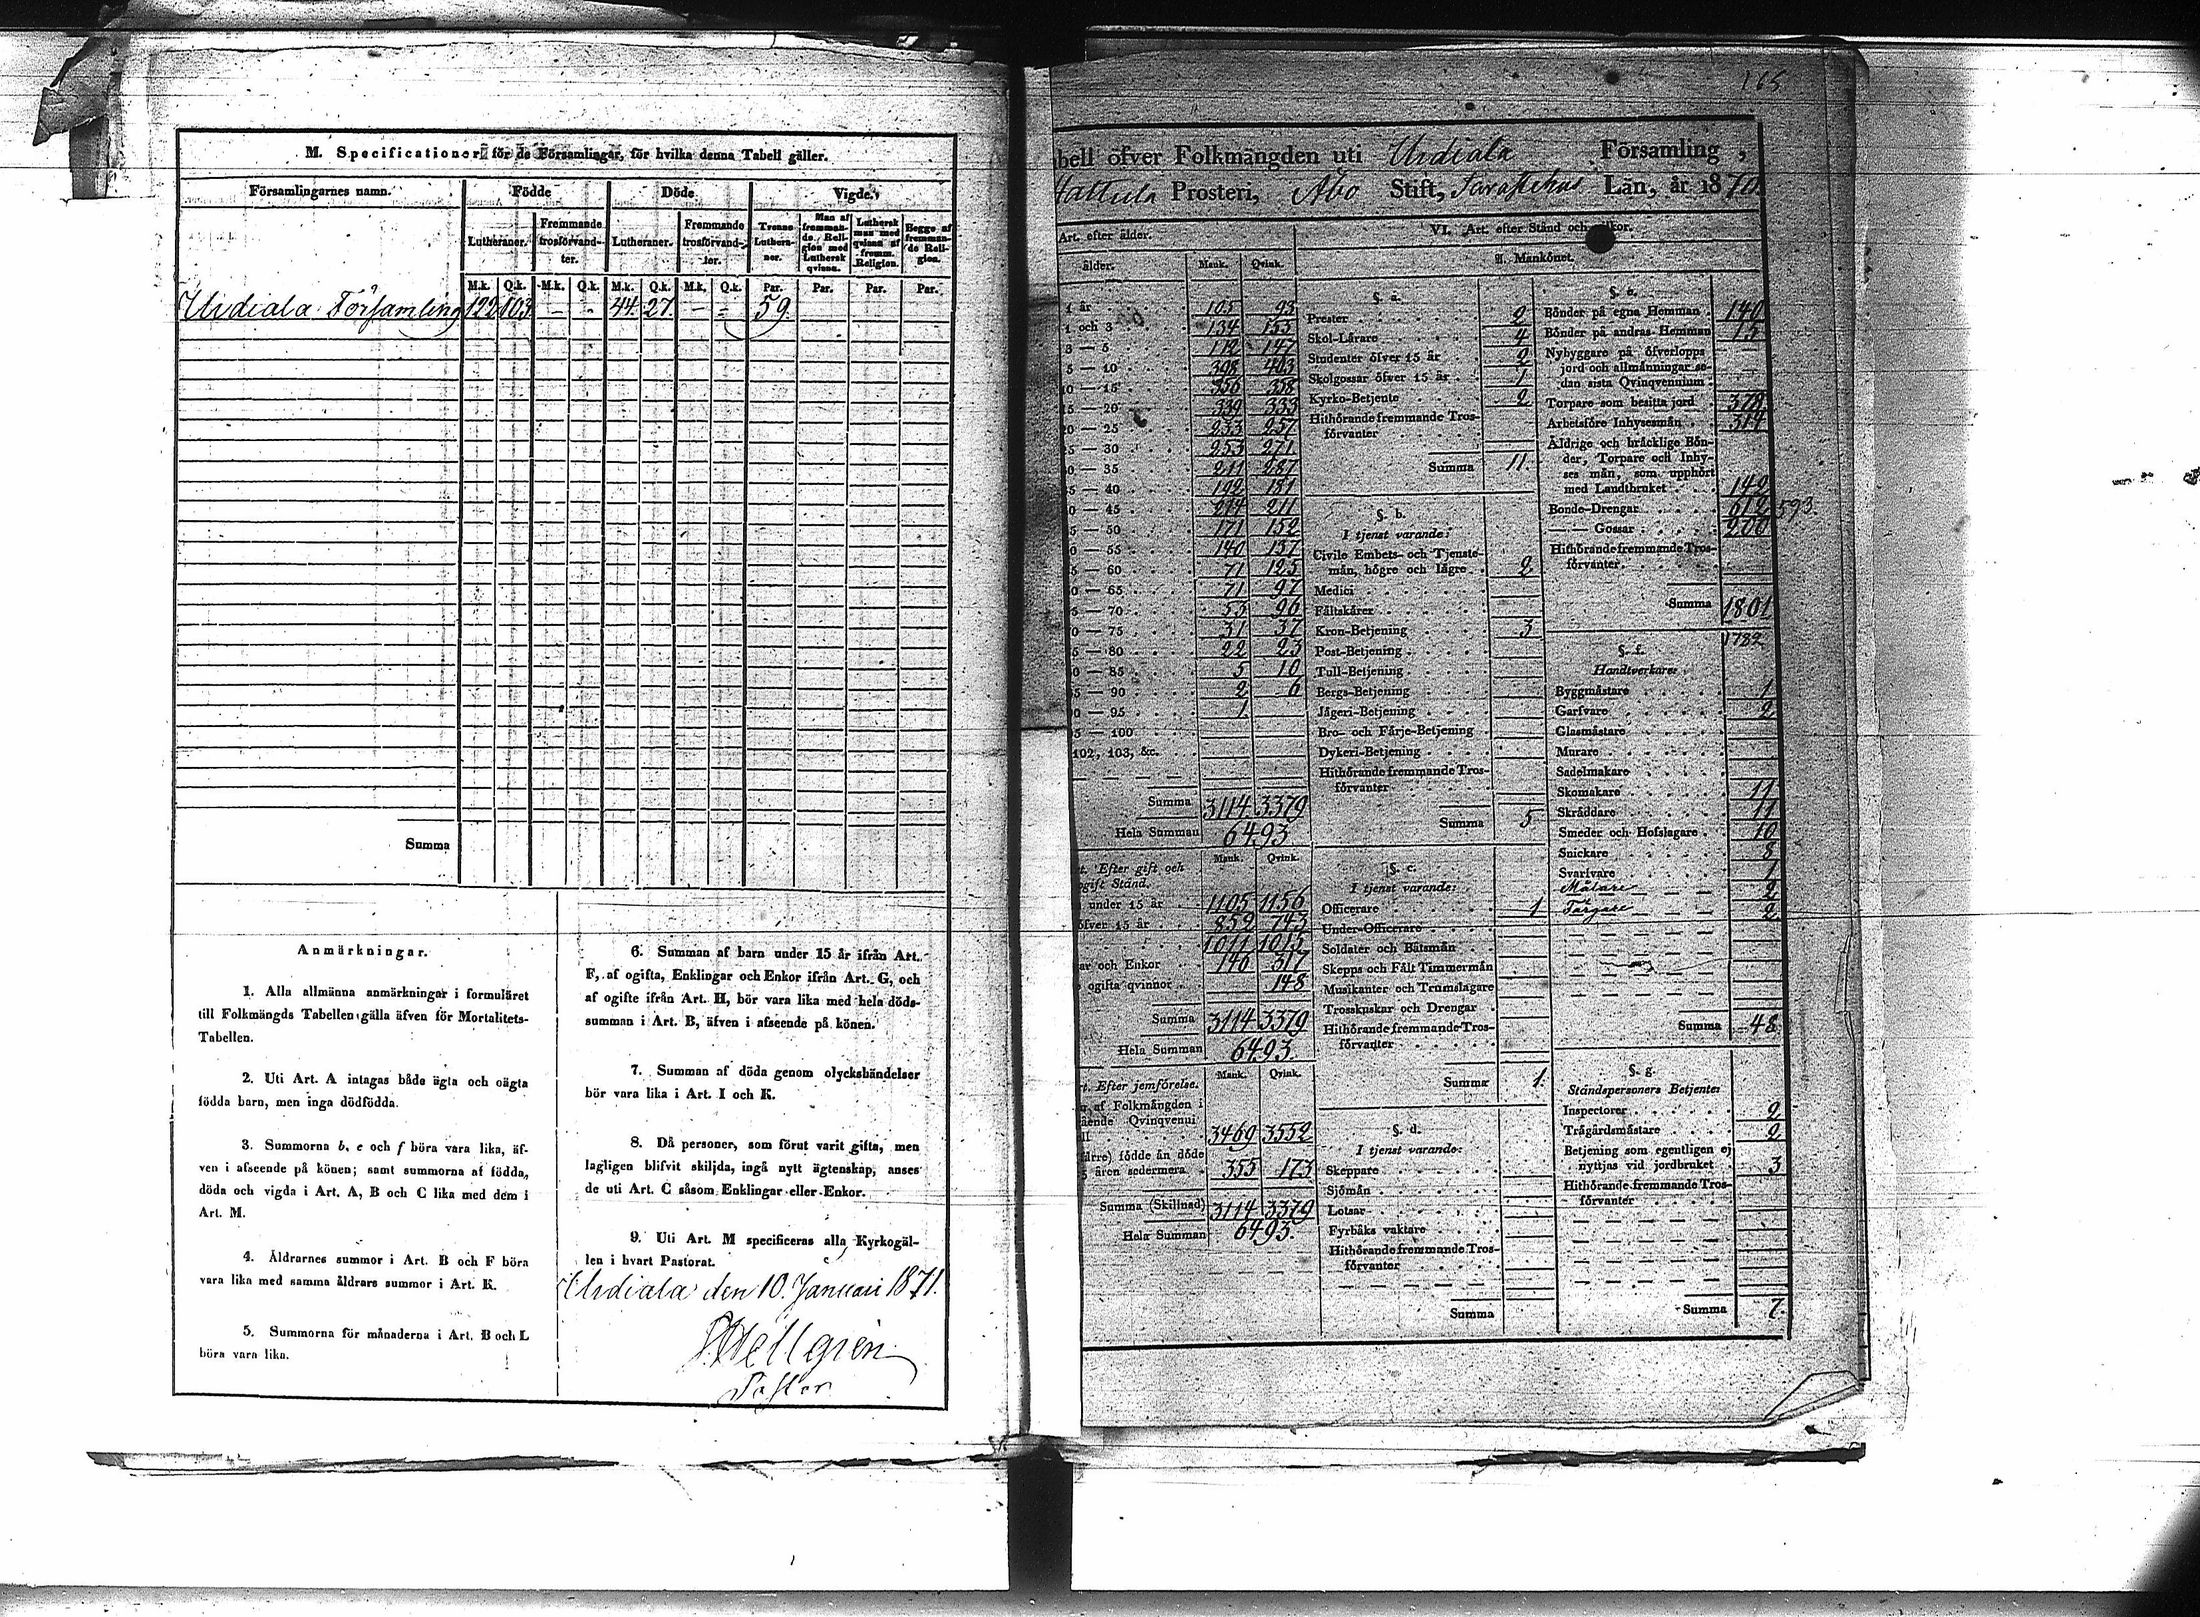 M. Specificationer för de Församlingar, för hvilka denna Tabell gäller.
Församlingarnes namn. Födde Döde. Vigde.
Lutheraner. Fremmande trosförvandter. Lutheraner. Fremmande trosförvandter. Tvenne Lutheraner. Man af fremmande Religion med Luthersk qvinna. Luthersk man med qvinna af fremm. Religion. Begge af fremmande Religion.
M.k. Q.k. M.k. Q.k. M.k. Q.k. M.k. Q.k. Par. Par. Par. Par.
Urdiala Församling 122 103 - - 44 27 - - 59.
Summa
Anmärkningar.
1. Alla allmänna anmärkningar i formuläret
till Folkmängds Tabellen gälla äfven för Mortalitets-
Tabellen.
2. Uti Art. A intagas både ägta och oägta
födda barn, men inga dödfödda.
3. Summorna b, e och f böra vara lika, äf-
ven i afseende på könen; samt summorna af födda,
döda och vigda i Art. A, B och C lika med dem i
Art. M.
4. Åldrarnes summor i Art. B och F böra
vara lika med samma åldrars summor i Art. K.
5. Summorna för månaderna i Art. B och L
böra vara lika.
6. Summan af barn under 15 år ifrån Art.
F, af ogifta, Enklingar och Enkor ifrån Art. G, och
af ogifte ifrån Art. H, bör vara lika med hela döds-
summan i Art. B, äfven i afseende på könen.
7. Summan af döda genom olyckshändelser
bör vara lika i Art. I och K.
8. Då personer, som förut varit gifta, men
lagligen blifvit skiljda, ingå nytt ägtenskap, anses
de uti Art. C såsom Enklingar eller Enkor.
9. Uti Art. M specificeras alla Kyrkogäl-
len i hvart Pastorat.
Urdiala den 10. Januari 1871.
Hellgren
Pastor
165
bell öfver Folkmängden uti Urdiala Församling,
Hattula Prosteri, Åbo Stift, Tavastehus Län, år 1870.
Art. efter ålder.
ålder. Mank. Qvink.
1 år 105 93
1 och 3 134 155
3 — 5 112 147
5 — 10 398 403
10 — 15 356 358
15 — 20 339 333
20 — 25 233 257
25 — 30 253 271
30 — 35 211 287
35 — 40 192 181
40 — 45 214 211
5 — 50 171 152
0 — 55 140 137
5 — 60 71 125
0 — 65 71 97
5 — 70 53 96
0 — 75 31 37
5 — 80 22 23
0 — 85 5 10
5 — 90 2 6
0 — 95 1
5 — 100
102, 103, &c.
Summa 3114 3379
Hela Summan 6493.
Mank. Qvink.
t. Efter gift och
ogift Stånd.
under 15 år 1105 1156
öfver 15 år 852 743
1011 1015
ar och Enkor 146 317
ogifta qvinnor 148
Summa 3114 3379
Hela Summan 6493.
Mank. Qvink.
rt. Efter jemförelse.
af Folkmängden i
ående Qvinqvenni
3469 3552
färre) födde än döde
5 åren sedermera 355 173
Summa (Skillnad) 3114 3379
Hela Summan 6493.
VI. Art. efter Stånd och
A. Mankönet.
§. a.
Prester 2
Skol-Lärare 4
Studenter öfver 15 år 2
Skolgossar öfver 15 år 1
Kyrko-Betjente 2
Hithörande fremmande Tros-
förvanter
Summa 11.
§. b.
I tjenst varande:
Civile Embets- och Tjenste-
män, högre och lägre 2
Medici
Fältskärer
Kron-Betjening 3
Post-Betjening
Tull-Betjening
Bergs-Betjening
Jägeri-Betjening
Bro- och Färje-Betjening
Dykeri-Betjening
Hithörande fremmande Tros-
förvanter
Summa 5
§. c.
I tjenst varande:
Officerare 1
Under-Officerare
Soldater och Båtsmän
Skepps och Fält Timmermän
Musikanter och Trumslagare
Trosskuskar och Drengar
Hithörande fremmande Tros-
förvanter
Summa 1.
§. d.
I tjenst varande:
Skeppare
Sjömän
Lotsar
Fyrbåks vaktare
Hithörande fremmande Tros-
förvanter
Summa
§. e.
Bönder på egna Hemman 140
Bönder på andras Hemman 15
Nybyggare på öfverlopps
jord och allmänningar se-
dan sista Qvinqvennium
Torpare som besitta jord 378
Arbetsföre Inhysesmän 314
Åldrige och bräcklige Bön-
der, Torpare och Inhy-
ses män, som upphört
med Landtbruket 142
Bonde-Drengar 612 593.
— — Gossar 200
Hithörande fremmande Tros-
förvanter
Summa 1801
1782
§. f.
Handtverkare
Byggmästare 1
Garfvare 2
Glasmästare
Murare
Sadelmakare
Skomakare 11
Skräddare 11
Smeder och Hofslagare 10
Snickare 8
Svarfvare 1
Målare 2
Färgare 2
Summa 48.
§. g.
Ståndspersoners Betjente:
Inspectorer 2
Trägårdsmästare 2
Betjening som egentligen ej
nyttjas vid jordbruket 3
Hithörande fremmande Tros-
förvanter
Summa 7.